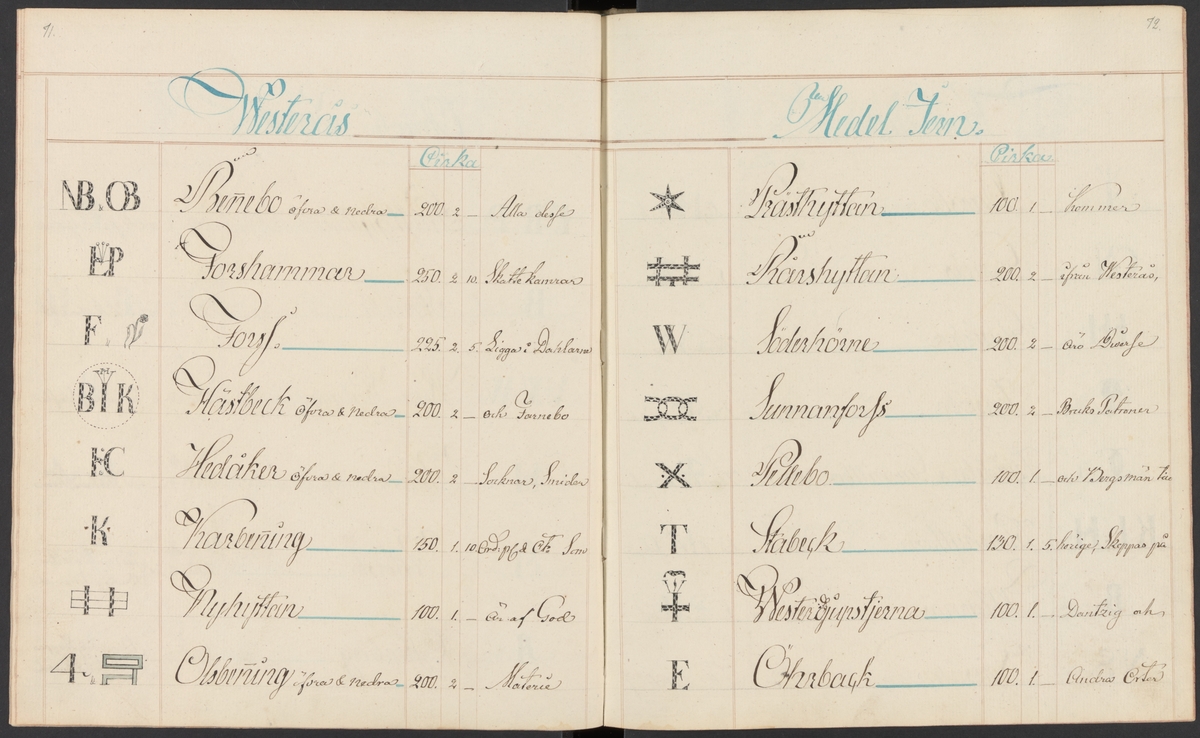 71.
Westerås
Cirka
NB. OB Bennebo öfra & Nedra 200. 2 — Alla desse
EP Forshammar 250. 2 10. Skatte kamrar
F. Forss. 225. 2. 5. Ligga i Dahlarne
BMK Hästbeck öfra & Nedra 200. 2 — och Fornebo
HC Hedåker öfra & Nedra 200. 2 — Socknar, Smider
K Karbenning 150. 1. 10. Ord: & Som
Nyhyttan 100. 1. — är af God
4. Olsbenning öfra & Nedra 200. 2 — Materie
72.
Medel Jern.
Cirka
Prästhyttan 100. 1 — kommer
Rårshyttan 200. 2 — ifrån Westerås,
W Söderhörne 200. 2 — äro Diverse
Sunnanforss 200. 2 — Bruks Patroner
X Pellebo 100. 1. — och Bergsmän
T Stabeck 130. 1. 5. hörige, Skeppas på
Westergjupstjerna 100. 1. — Dantzig och
E Öhrback 100. 1. — Andra Orter